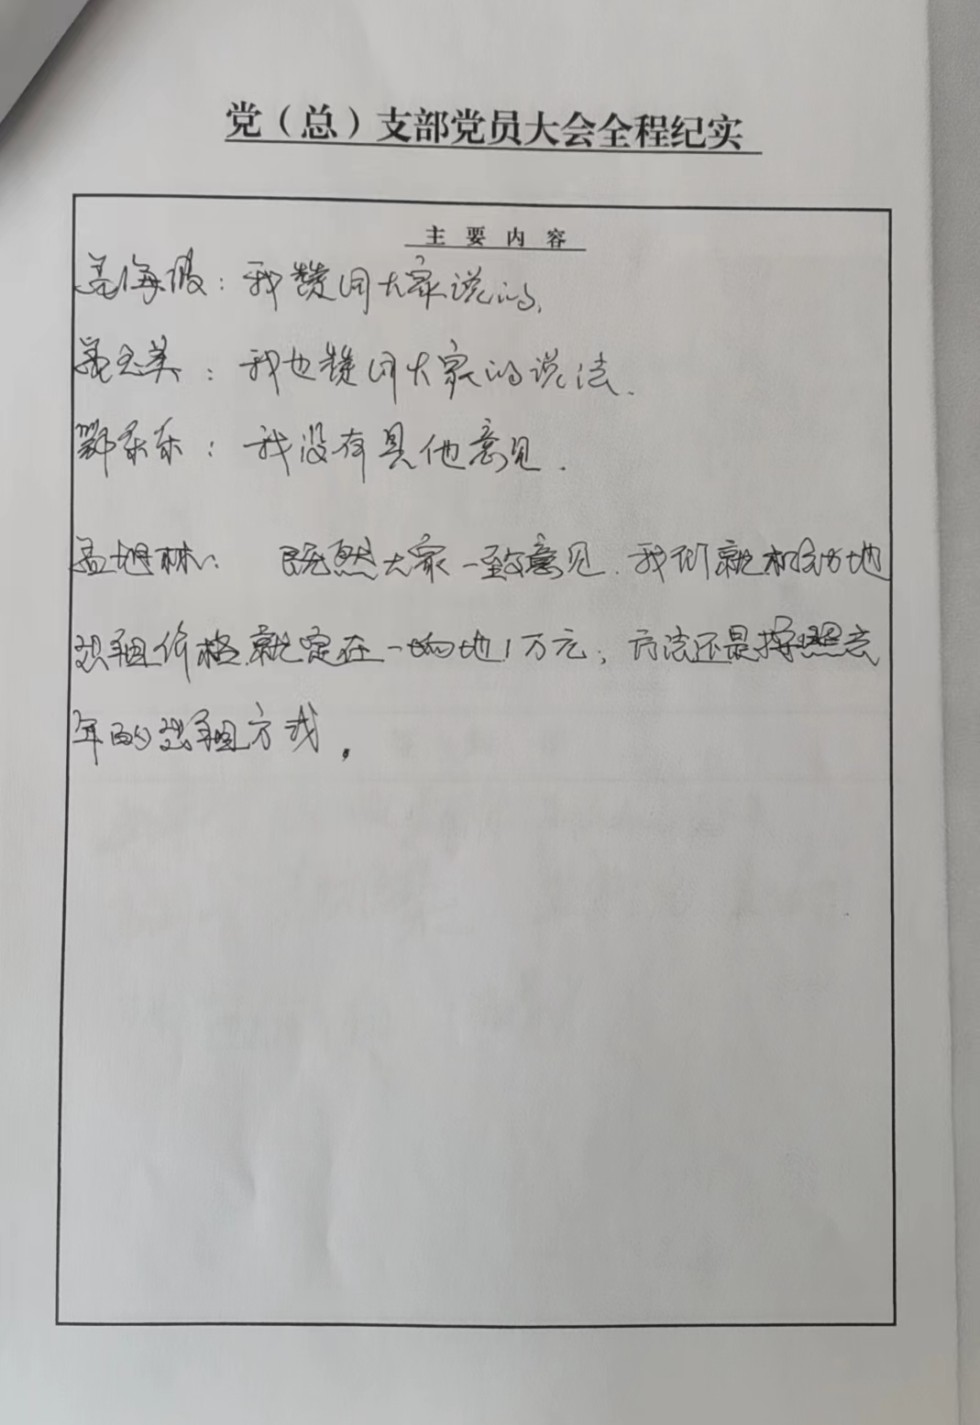 党（总）支部党员大会全程纪实
主要内容
孟海波：我赞同大家说的.
孟玉英：我也赞同大家的说法.
鄂乐乐：我没有其他意见.
孟旭林： 既然大家一致意见.我们就机动地
发租价格就定在一垧地1万元，方法还是按照去
年的发租方式.